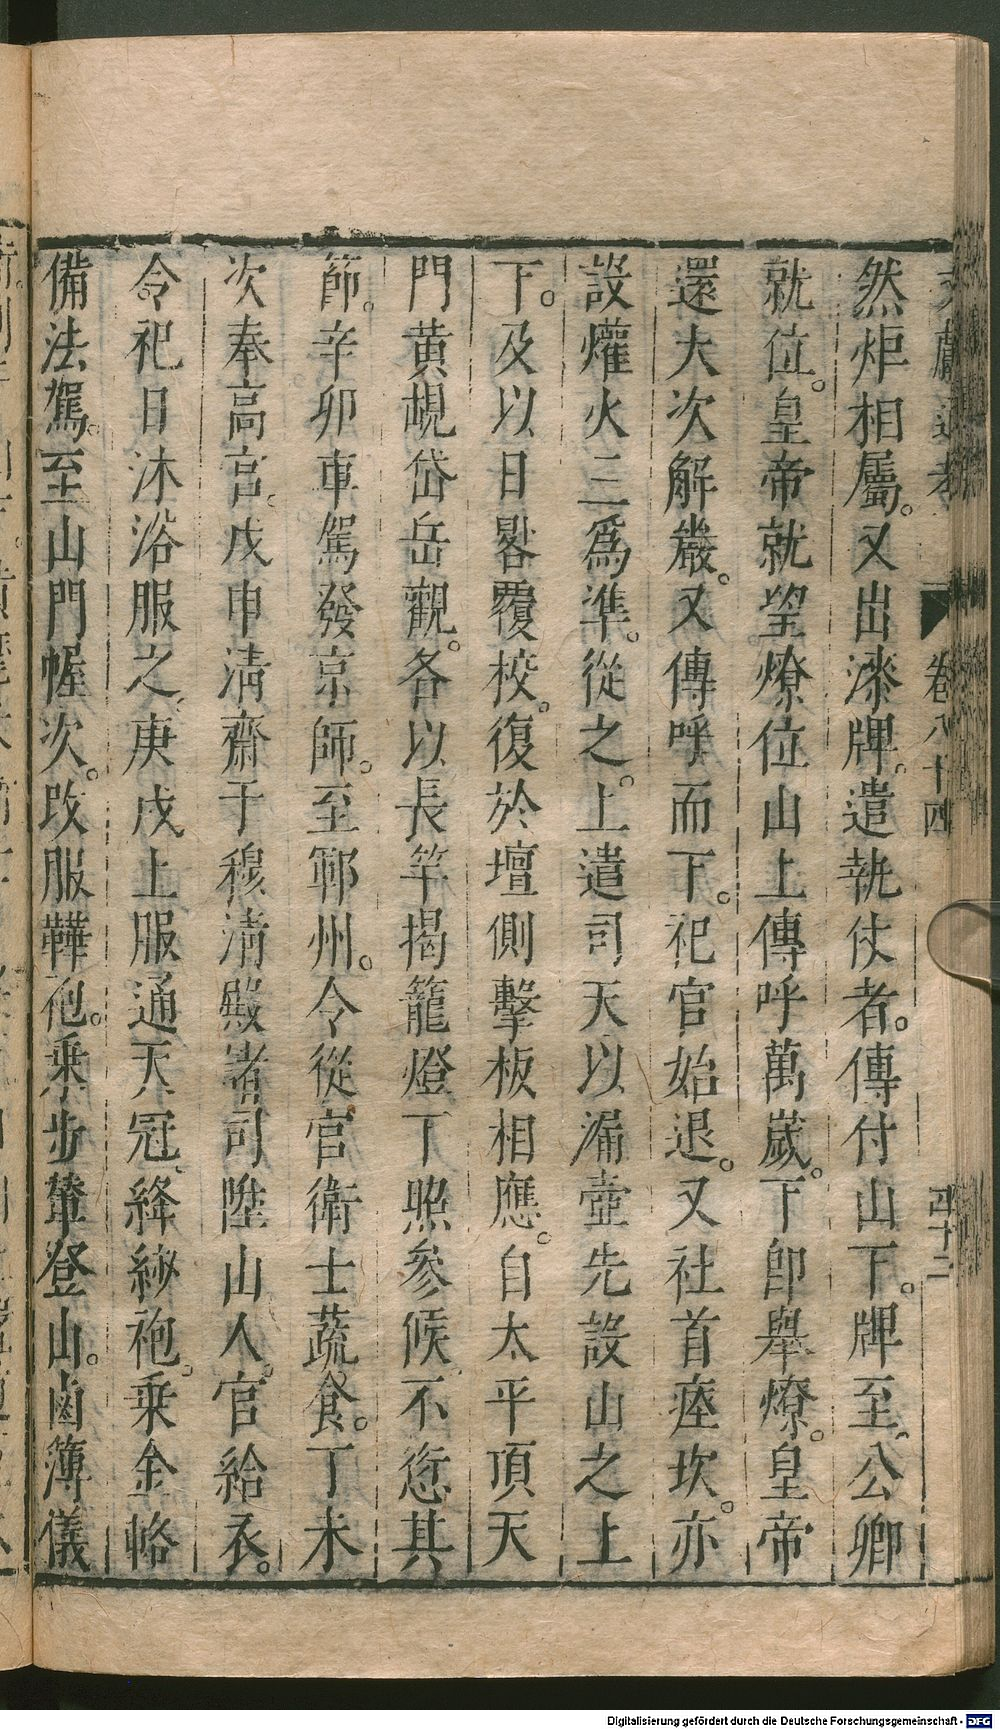 文獻通考 卷八十四 四十二
然炬相屬。又出漆牌。遣執仗者。傳付山下。牌至。公卿
就位。皇帝就望燎位山上傳呼萬歲。下卽舉燎。皇帝
還大次解嚴。又傳呼而下。祀官始退。又社首瘞坎。亦
設爟火三爲準。從之。上遣司天以漏壺先設山之上
下。及以日晷覆校。復於壇側擊板相應。自太平頂天
門黃峴岱岳觀。各以長竿揭籠燈丁照參候。不愆其
節。辛卯車駕發京師。至鄆州。令從官衛士蔬食。丁未
次奉高宮。戊申清齋于穆清殿諸司陞山人。官給衣。
令祀日沐浴服之。庚戌上服通天冠、絳紗袍。乘金輅
備法駕。至山門幄次。改服鞾袍。乘步輦登山。鹵簿儀
Digitalisierung gefördert durch die Deutsche Forschungsgemeinschaft - DFG